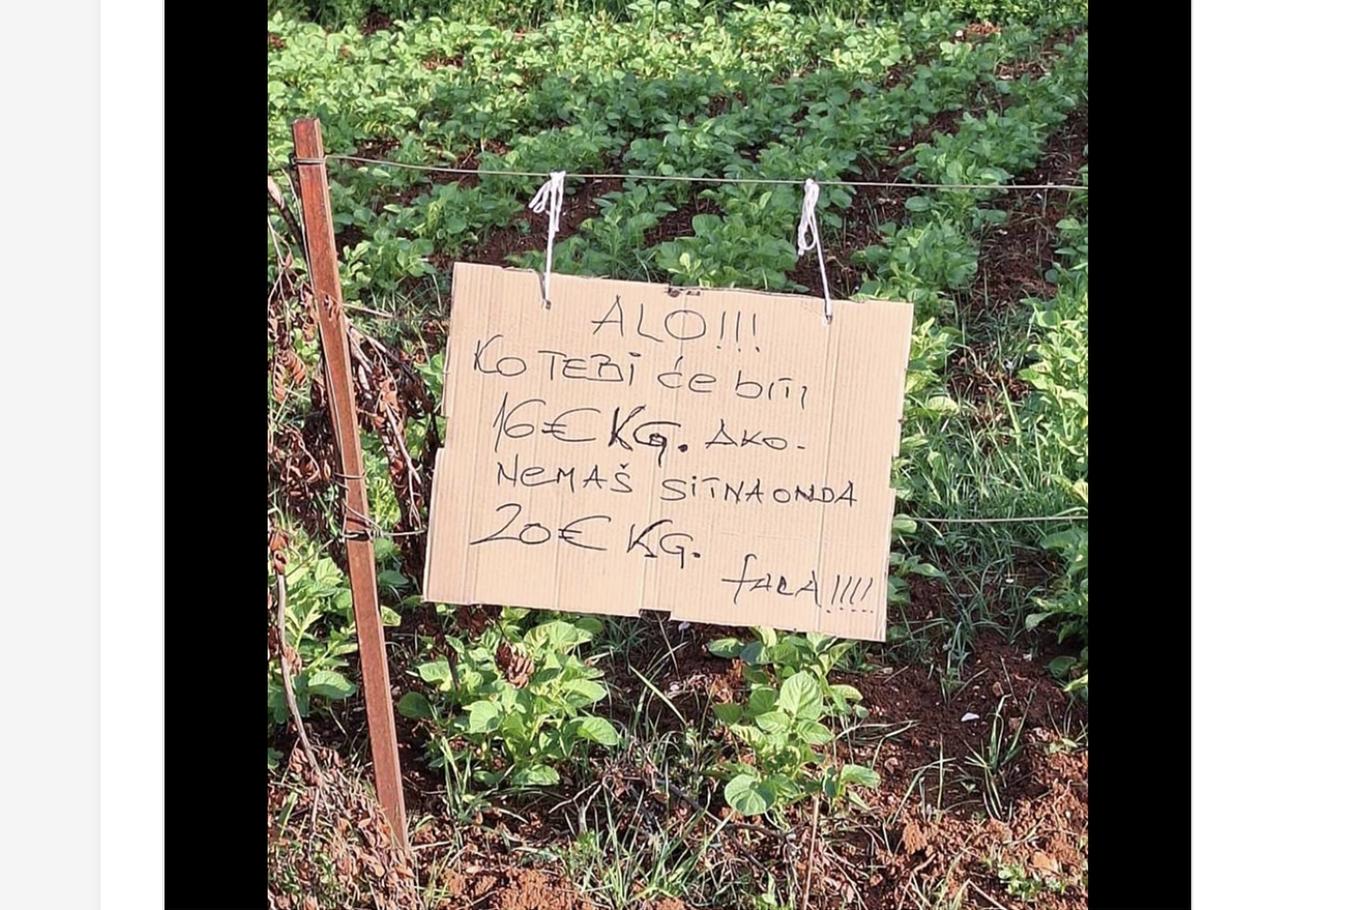 ALO!!!
KO TEBI će biti
16€ KG. AKO.
NEMAŠ SITNA ONDA
20€ KG.
fALA!!!!